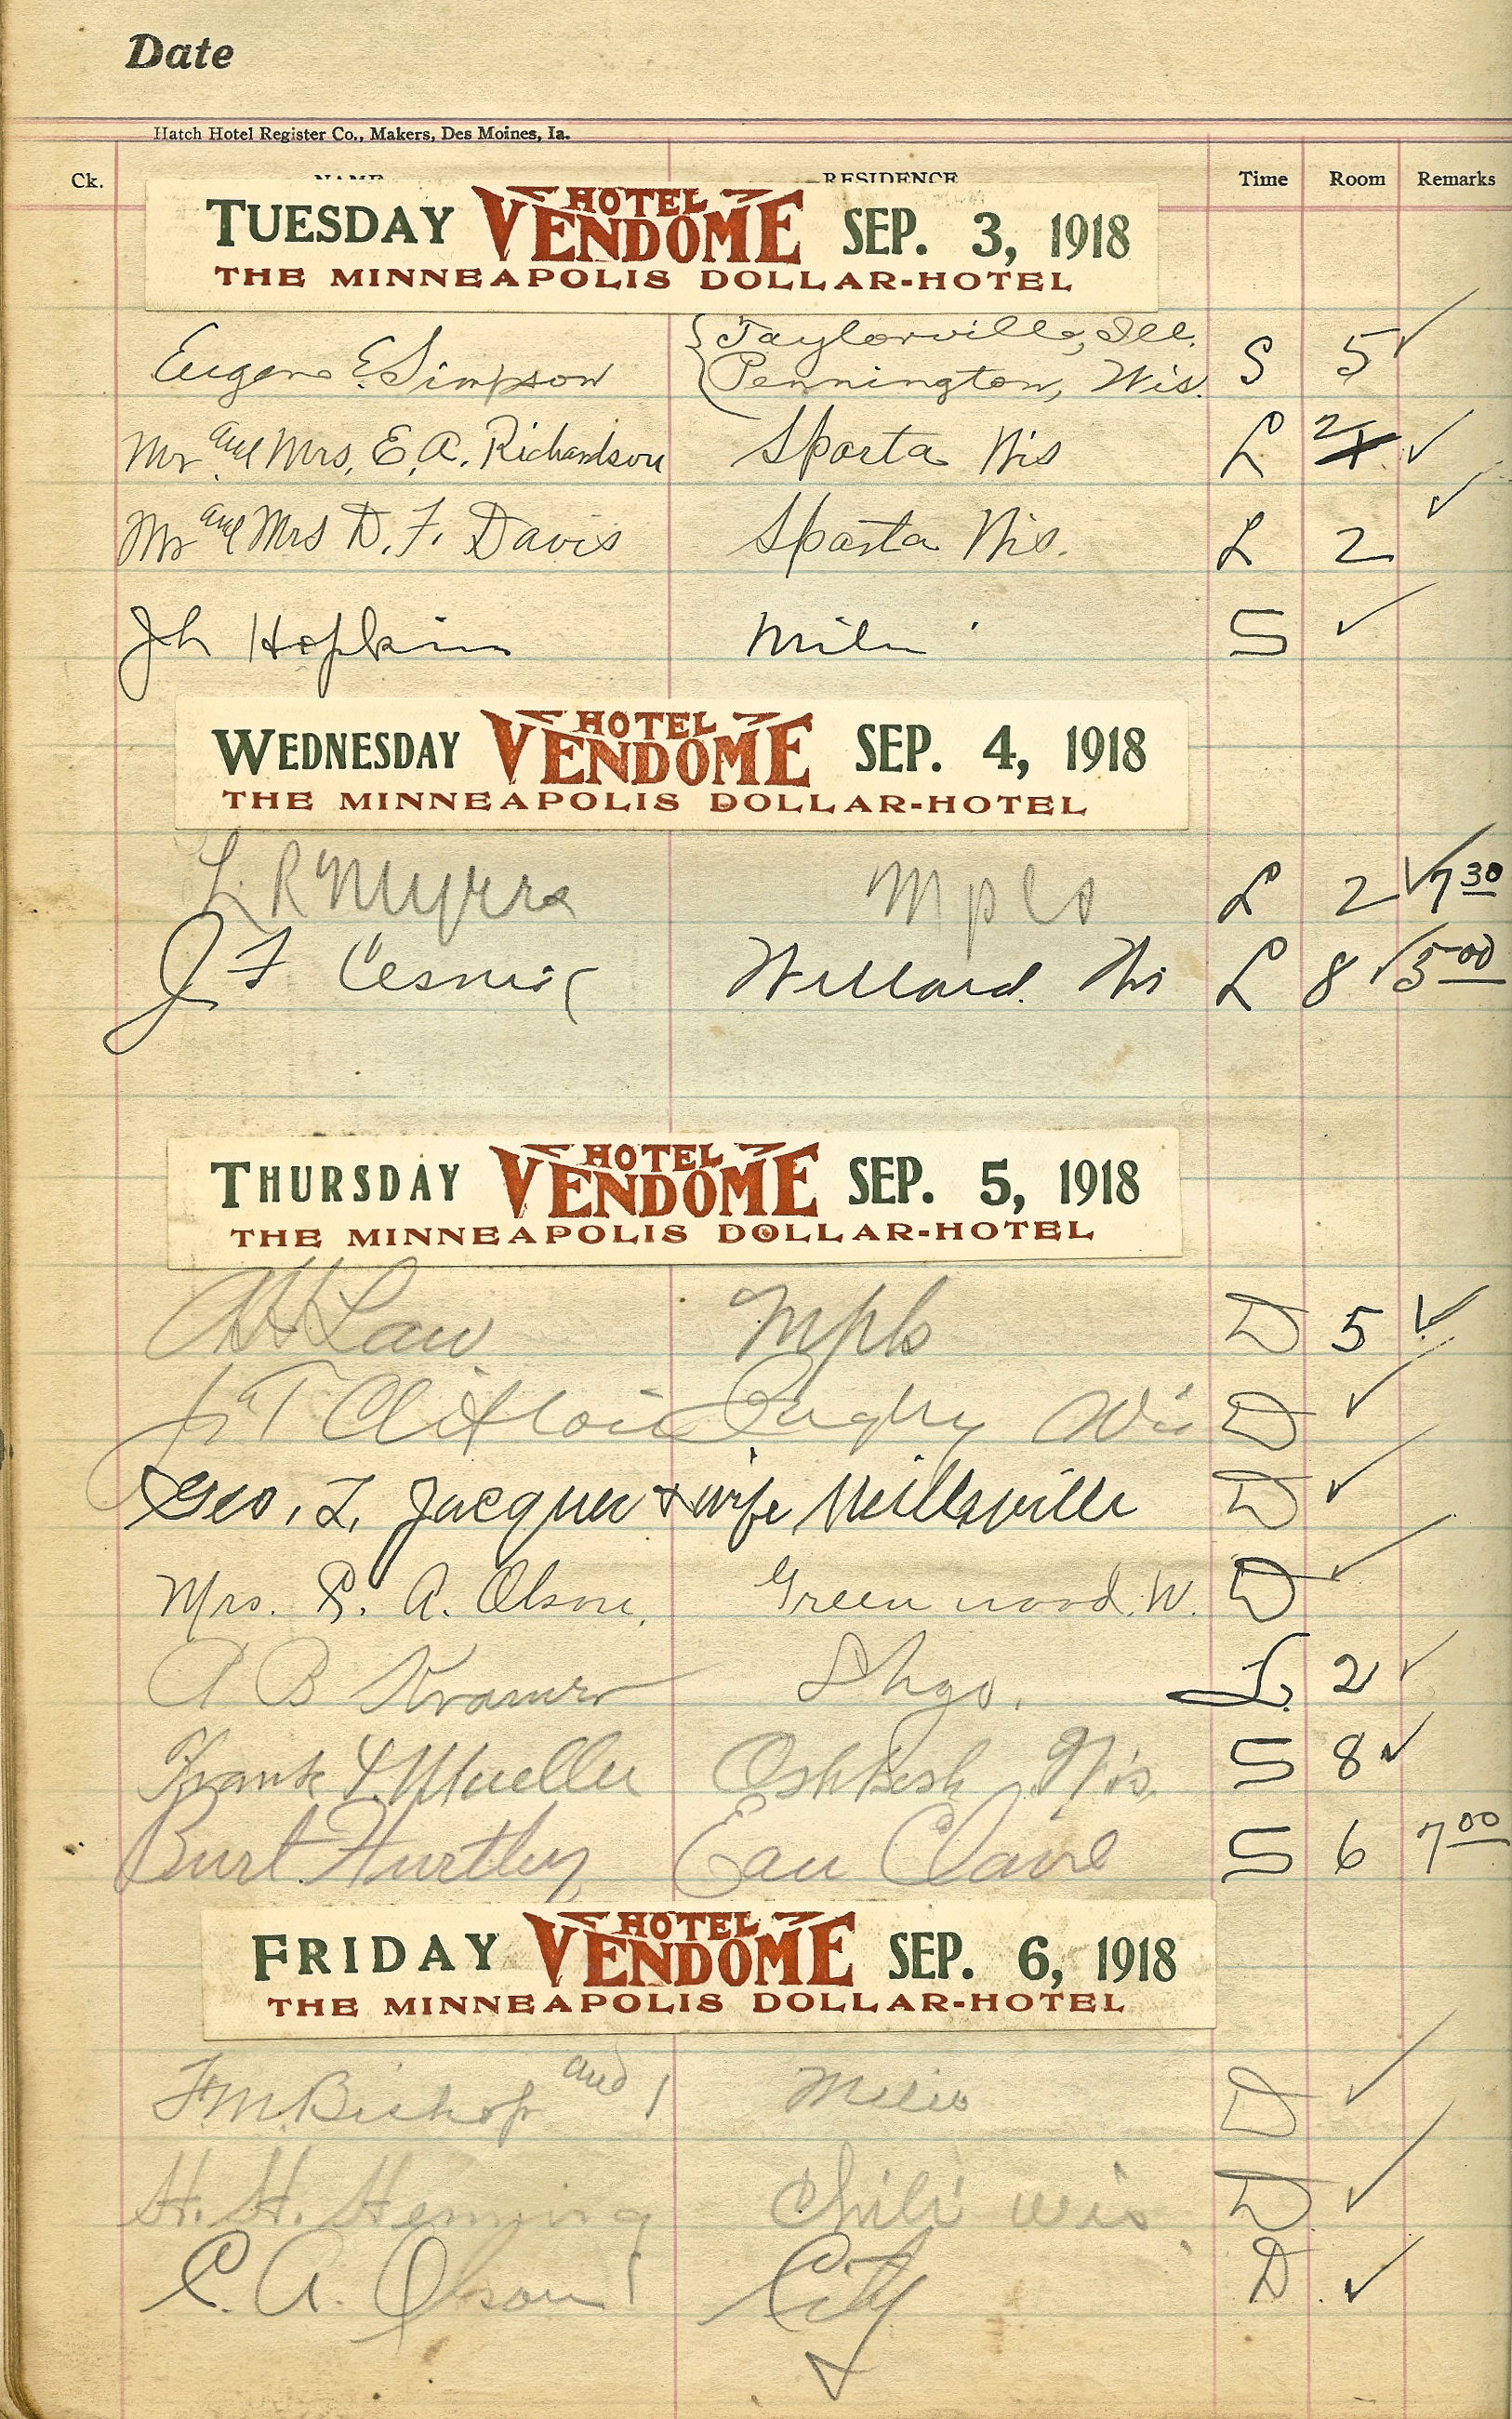 Date
Hatch Hotel Register Co., Makers, Des Moines, Ia.
Ck. NAME RESIDENCE Time Room Remarks
TUESDAY HOTEL VENDOME SEP. 3, 1918
THE MINNEAPOLIS DOLLAR-HOTEL
Eugene E. Simpson Taylorville, Ill. Pennington, Wis. S 5 ✓
Mr and Mrs. E. A. Richardson Sparta Wis L 2 ✓
Mr and Mrs D. F. Davis Sparta Wis. L 2 ✓
Jh Hopkins Milw S ✓
WEDNESDAY HOTEL VENDOME SEP. 4, 1918
THE MINNEAPOLIS DOLLAR-HOTEL
L. R. Myrra Mpls L 2 ✓ 7 30
J F Cesnic Willard. Wis L 8 ✓ 5 00
THURSDAY HOTEL VENDOME SEP. 5, 1918
THE MINNEAPOLIS DOLLAR-HOTEL
Law Mpls D 5 ✓
Wis D ✓
Geo. L. Jacques & wife Neillsville D ✓
Mrs. R. A. Olson. Greenwood. W. D ✓
A B Kramer Shgo. L. 2 ✓
Frank Mueller Oshkosh Wis. S 8 ✓
Burt Hurtley Eau Claire S 6 7 00
FRIDAY HOTEL VENDOME SEP. 6, 1918
THE MINNEAPOLIS DOLLAR-HOTEL
F. M. Bishop and 1 D ✓
H. H. Heming Chili Wis. D ✓
C. A. Olson City D ✓